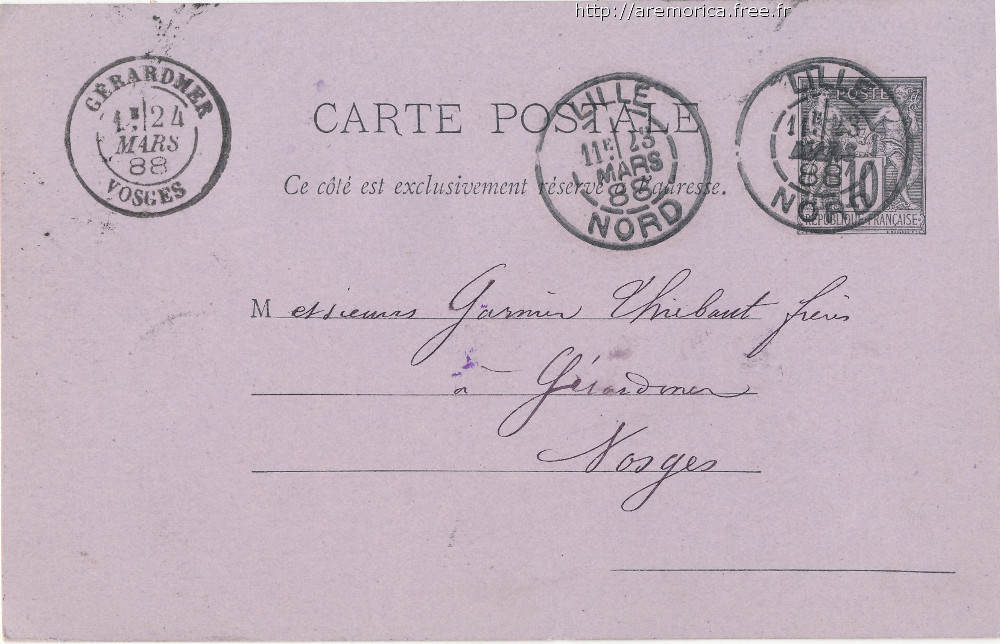 http://aremorica.free.fr
GÉRARDMER
1E 24
MARS
88
VOSGES
CARTE POSTALE
LILLE
11E 23
MARS
88
NORD
LILLE
11E 23
MARS
88
NORD
POSTE
10
RÉPUBLIQUE FRANÇAISE
Ce côté est exclusivement réservé à l'adresse.
Messieurs Garnier Thiébaut frères
à Gérardmer
Vosges